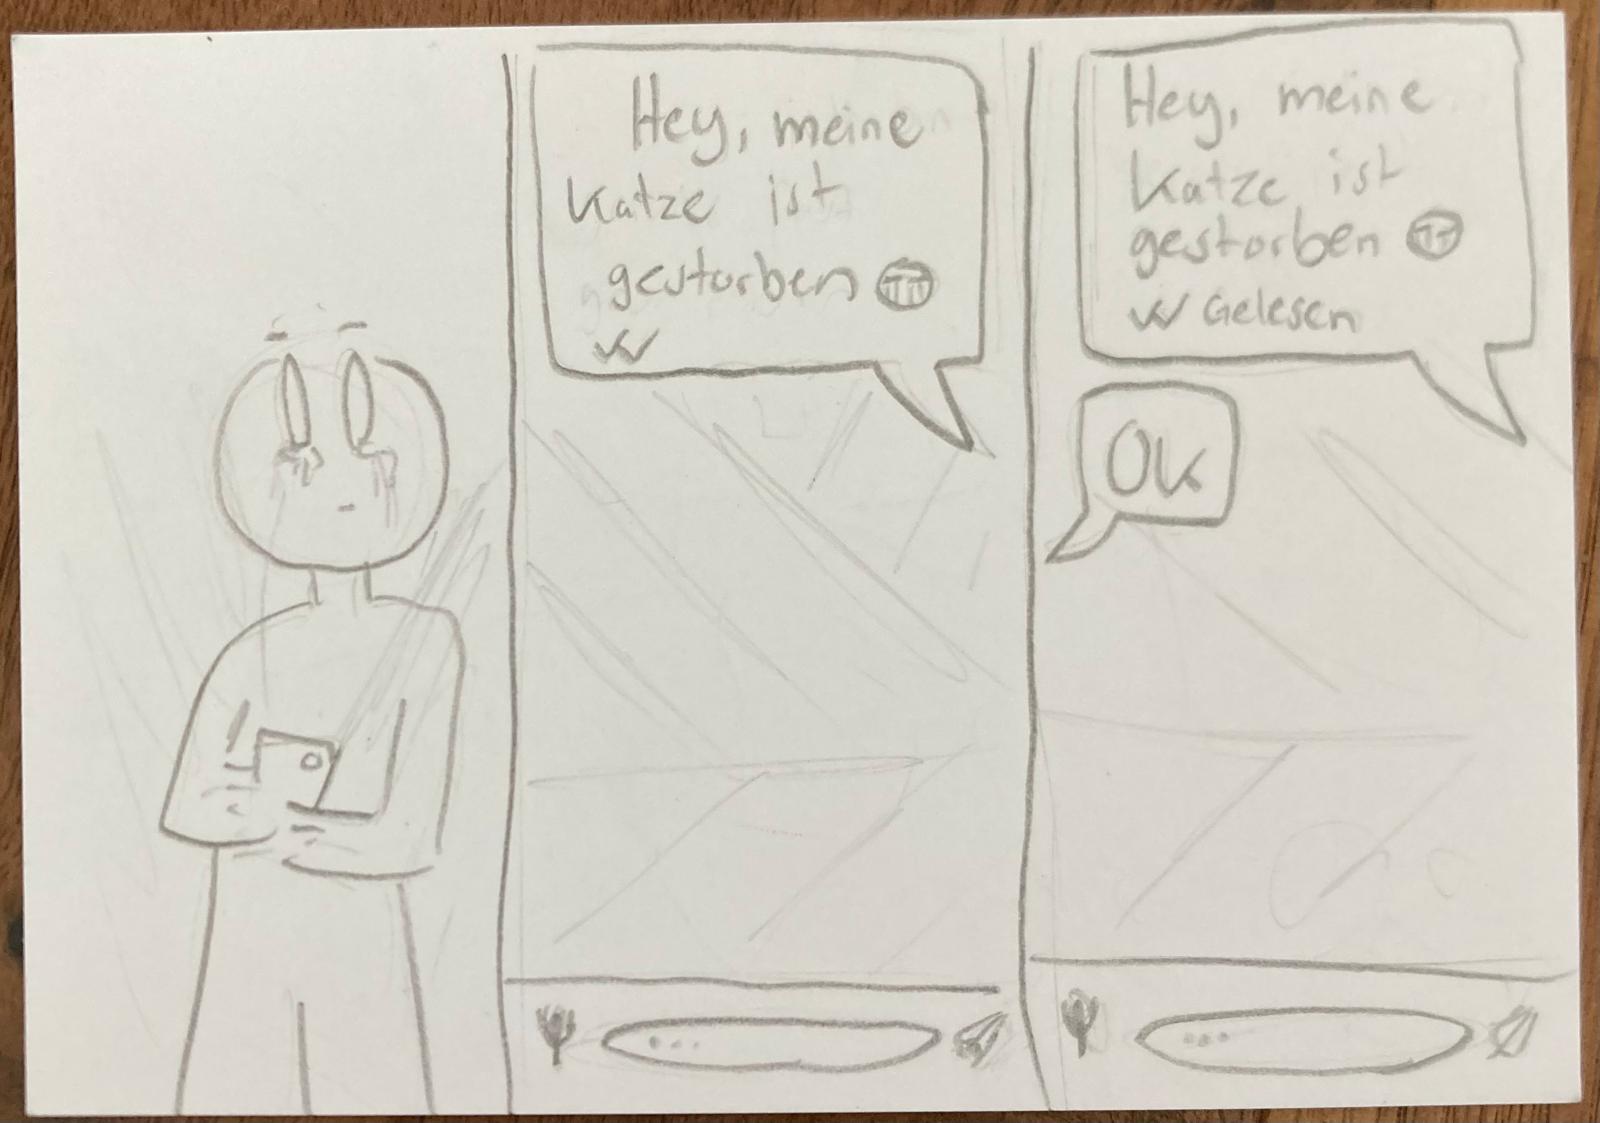 Hey, meine
Katze ist
gestorben
Hey, meine
Katze ist
gestorben
Gelesen
Ok